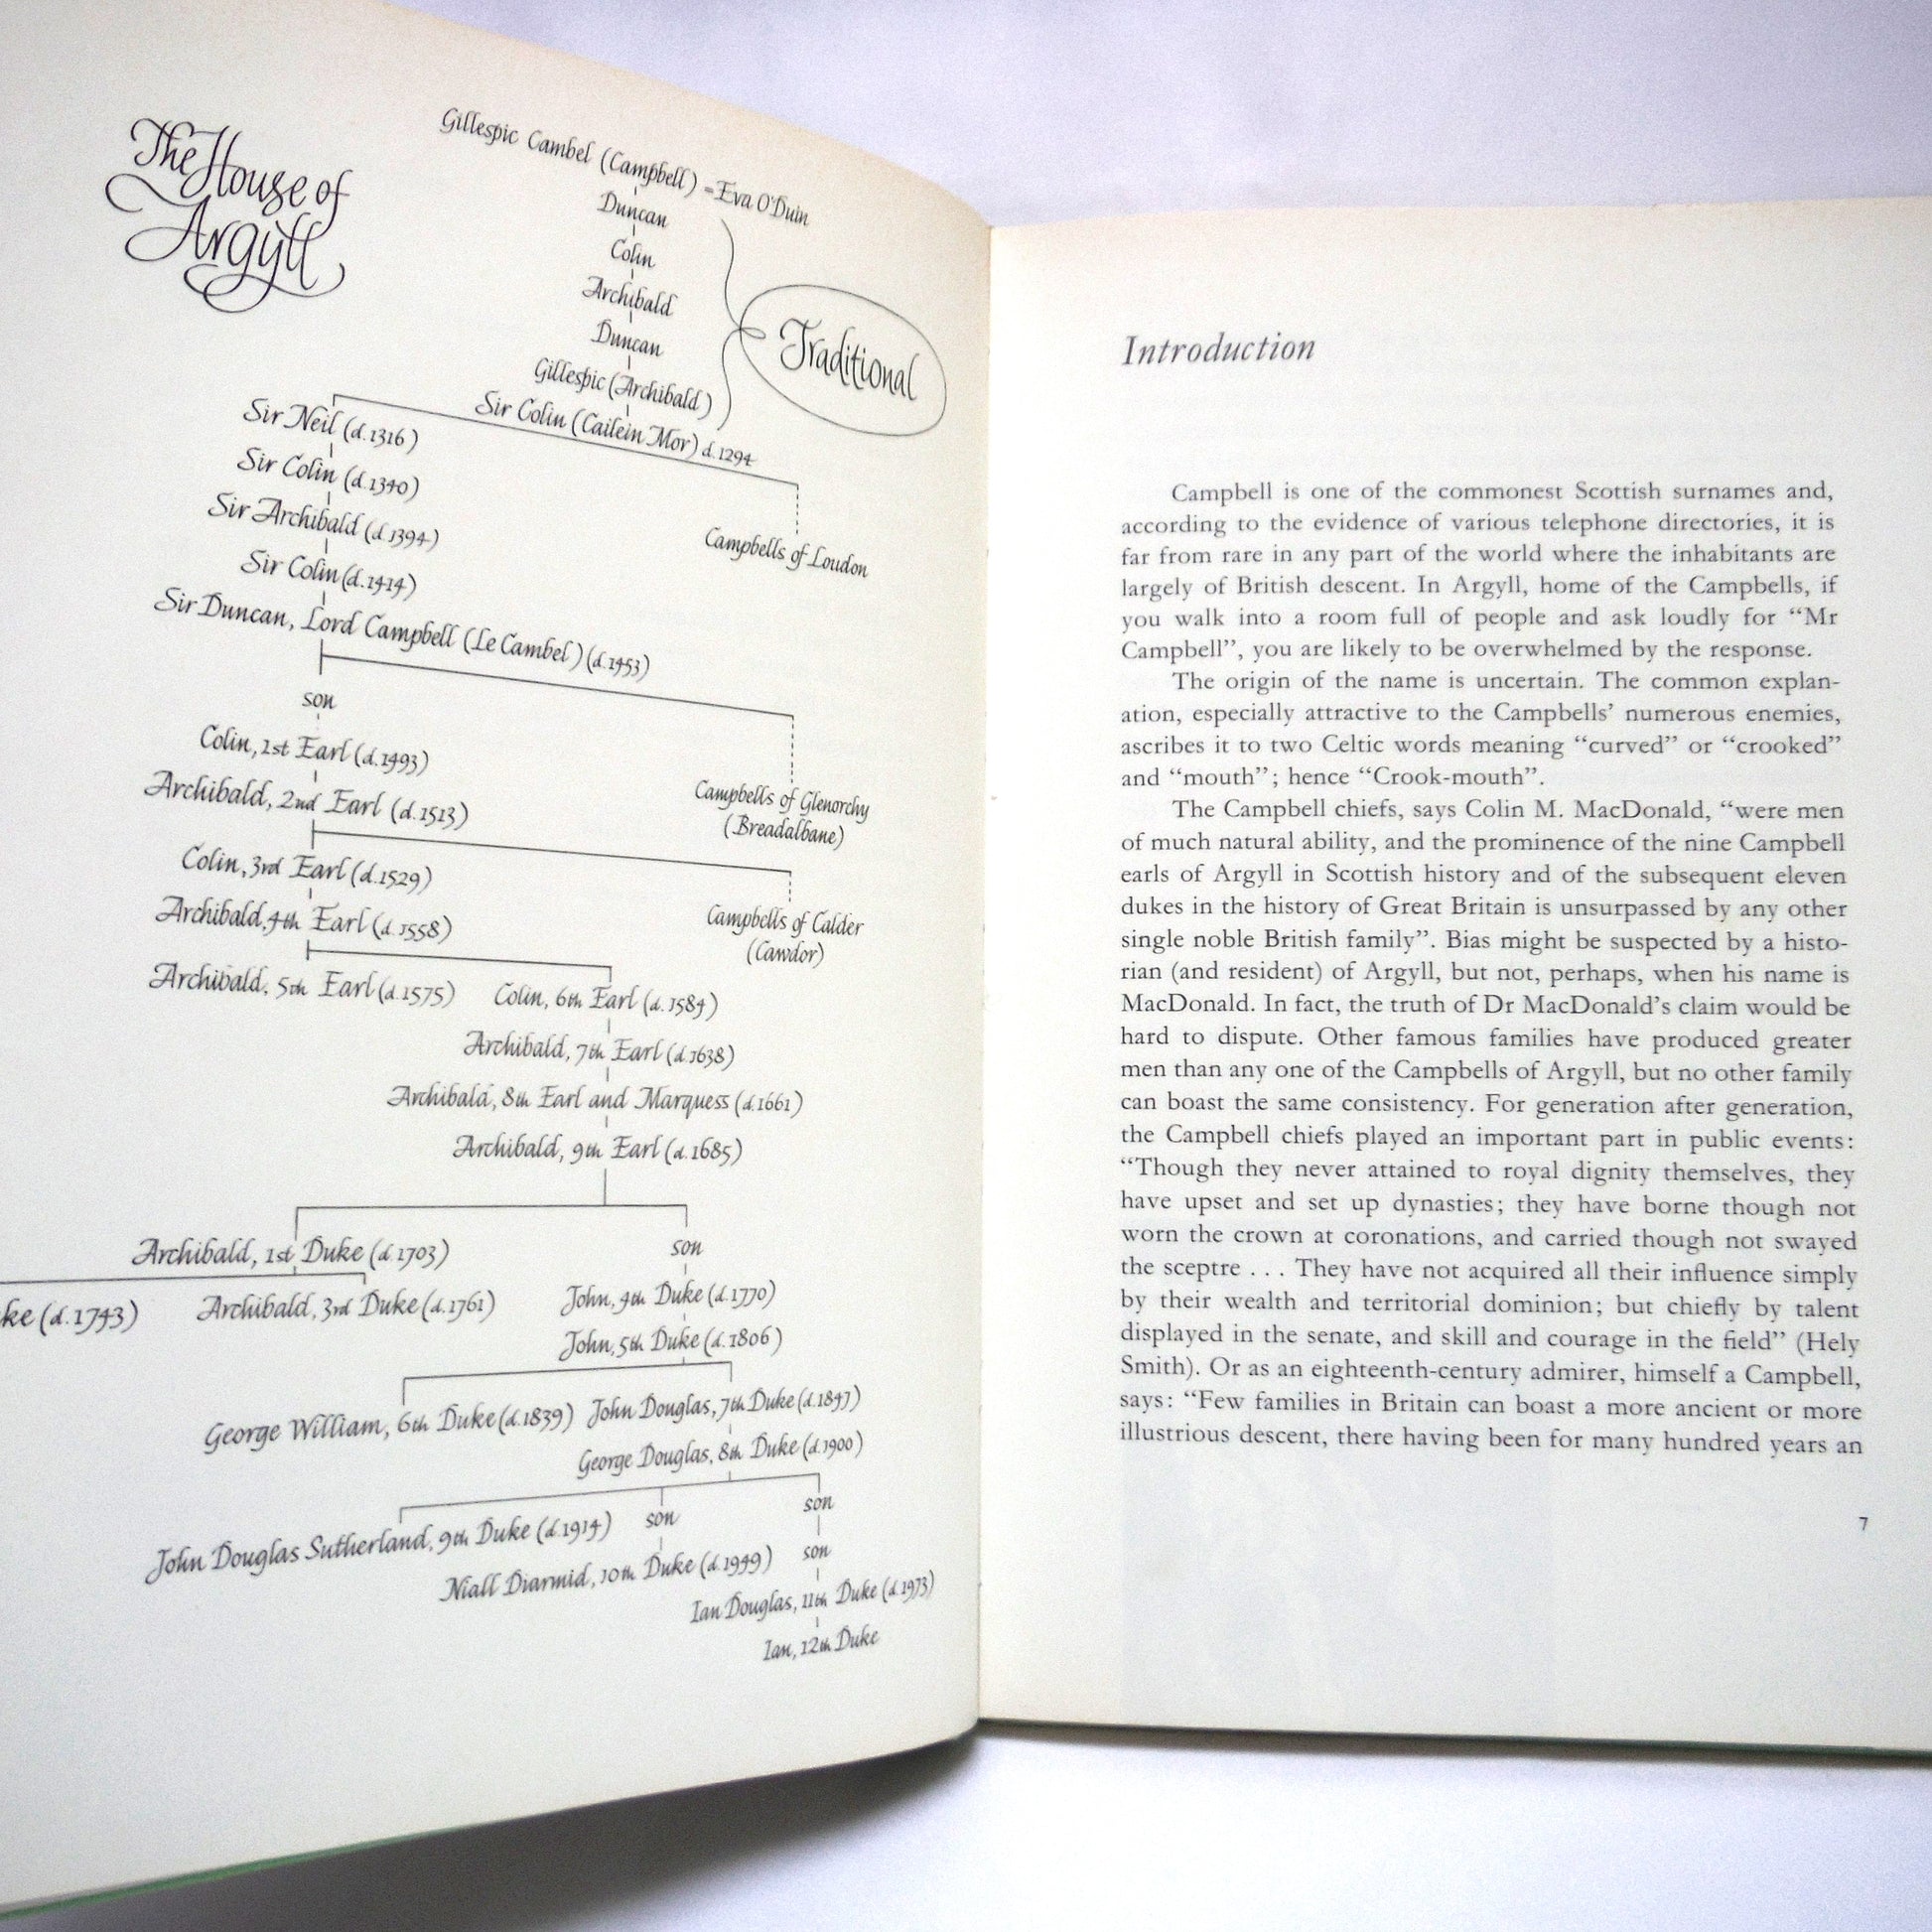 The House of
Argyll
Gillespic Cambel (Campbell) = Eva O'Duin
Duncan
Colin
Archibald
Duncan
Gillespic (Archibald)
Traditional
Sir Colin (Cailein Mor) d.1294
Sir Neil (d.1316)
Sir Colin (d.1340)
Sir Archibald (d.1394)
Campbells of Loudon
Sir Colin (d.1414)
Sir Duncan, Lord Campbell (Le Cambel) (d.1453)
son
Colin, 1st Earl (d.1493)
Archibald, 2nd Earl (d.1513)
Campbells of Glenorchy
(Breadalbane)
Colin, 3rd Earl (d.1529)
Archibald, 4th Earl (d.1558)
Campbells of Calder
(Cawdor)
Archibald, 5th Earl (d.1575) Colin, 6th Earl (d.1584)
Archibald, 7th Earl (d.1638)
Archibald, 8th Earl and Marquess (d.1661)
Archibald, 9th Earl (d.1685)
Archibald, 1st Duke (d.1703) son
ke (d.1743) Archibald, 3rd Duke (d.1761) John, 4th Duke (d.1770)
John, 5th Duke (d.1806)
George William, 6th Duke (d.1839) John Douglas, 7th Duke (d.1847)
George Douglas, 8th Duke (d.1900)
John Douglas Sutherland, 9th Duke (d.1914) son son
Niall Diarmid, 10th Duke (d.1949) son
Ian Douglas, 11th Duke (d.1973)
Ian, 12th Duke
Introduction
Campbell is one of the commonest Scottish surnames and,
according to the evidence of various telephone directories, it is
far from rare in any part of the world where the inhabitants are
largely of British descent. In Argyll, home of the Campbells, if
you walk into a room full of people and ask loudly for “Mr
Campbell”, you are likely to be overwhelmed by the response.
The origin of the name is uncertain. The common explan-
ation, especially attractive to the Campbells’ numerous enemies,
ascribes it to two Celtic words meaning “curved” or “crooked”
and “mouth”; hence “Crook-mouth”.
The Campbell chiefs, says Colin M. MacDonald, “were men
of much natural ability, and the prominence of the nine Campbell
earls of Argyll in Scottish history and of the subsequent eleven
dukes in the history of Great Britain is unsurpassed by any other
single noble British family”. Bias might be suspected by a histo-
rian (and resident) of Argyll, but not, perhaps, when his name is
MacDonald. In fact, the truth of Dr MacDonald’s claim would be
hard to dispute. Other famous families have produced greater
men than any one of the Campbells of Argyll, but no other family
can boast the same consistency. For generation after generation,
the Campbell chiefs played an important part in public events:
“Though they never attained to royal dignity themselves, they
have upset and set up dynasties; they have borne though not
worn the crown at coronations, and carried though not swayed
the sceptre . . . They have not acquired all their influence simply
by their wealth and territorial dominion; but chiefly by talent
displayed in the senate, and skill and courage in the field” (Hely
Smith). Or as an eighteenth-century admirer, himself a Campbell,
says: “Few families in Britain can boast a more ancient or more
illustrious descent, there having been for many hundred years an
7